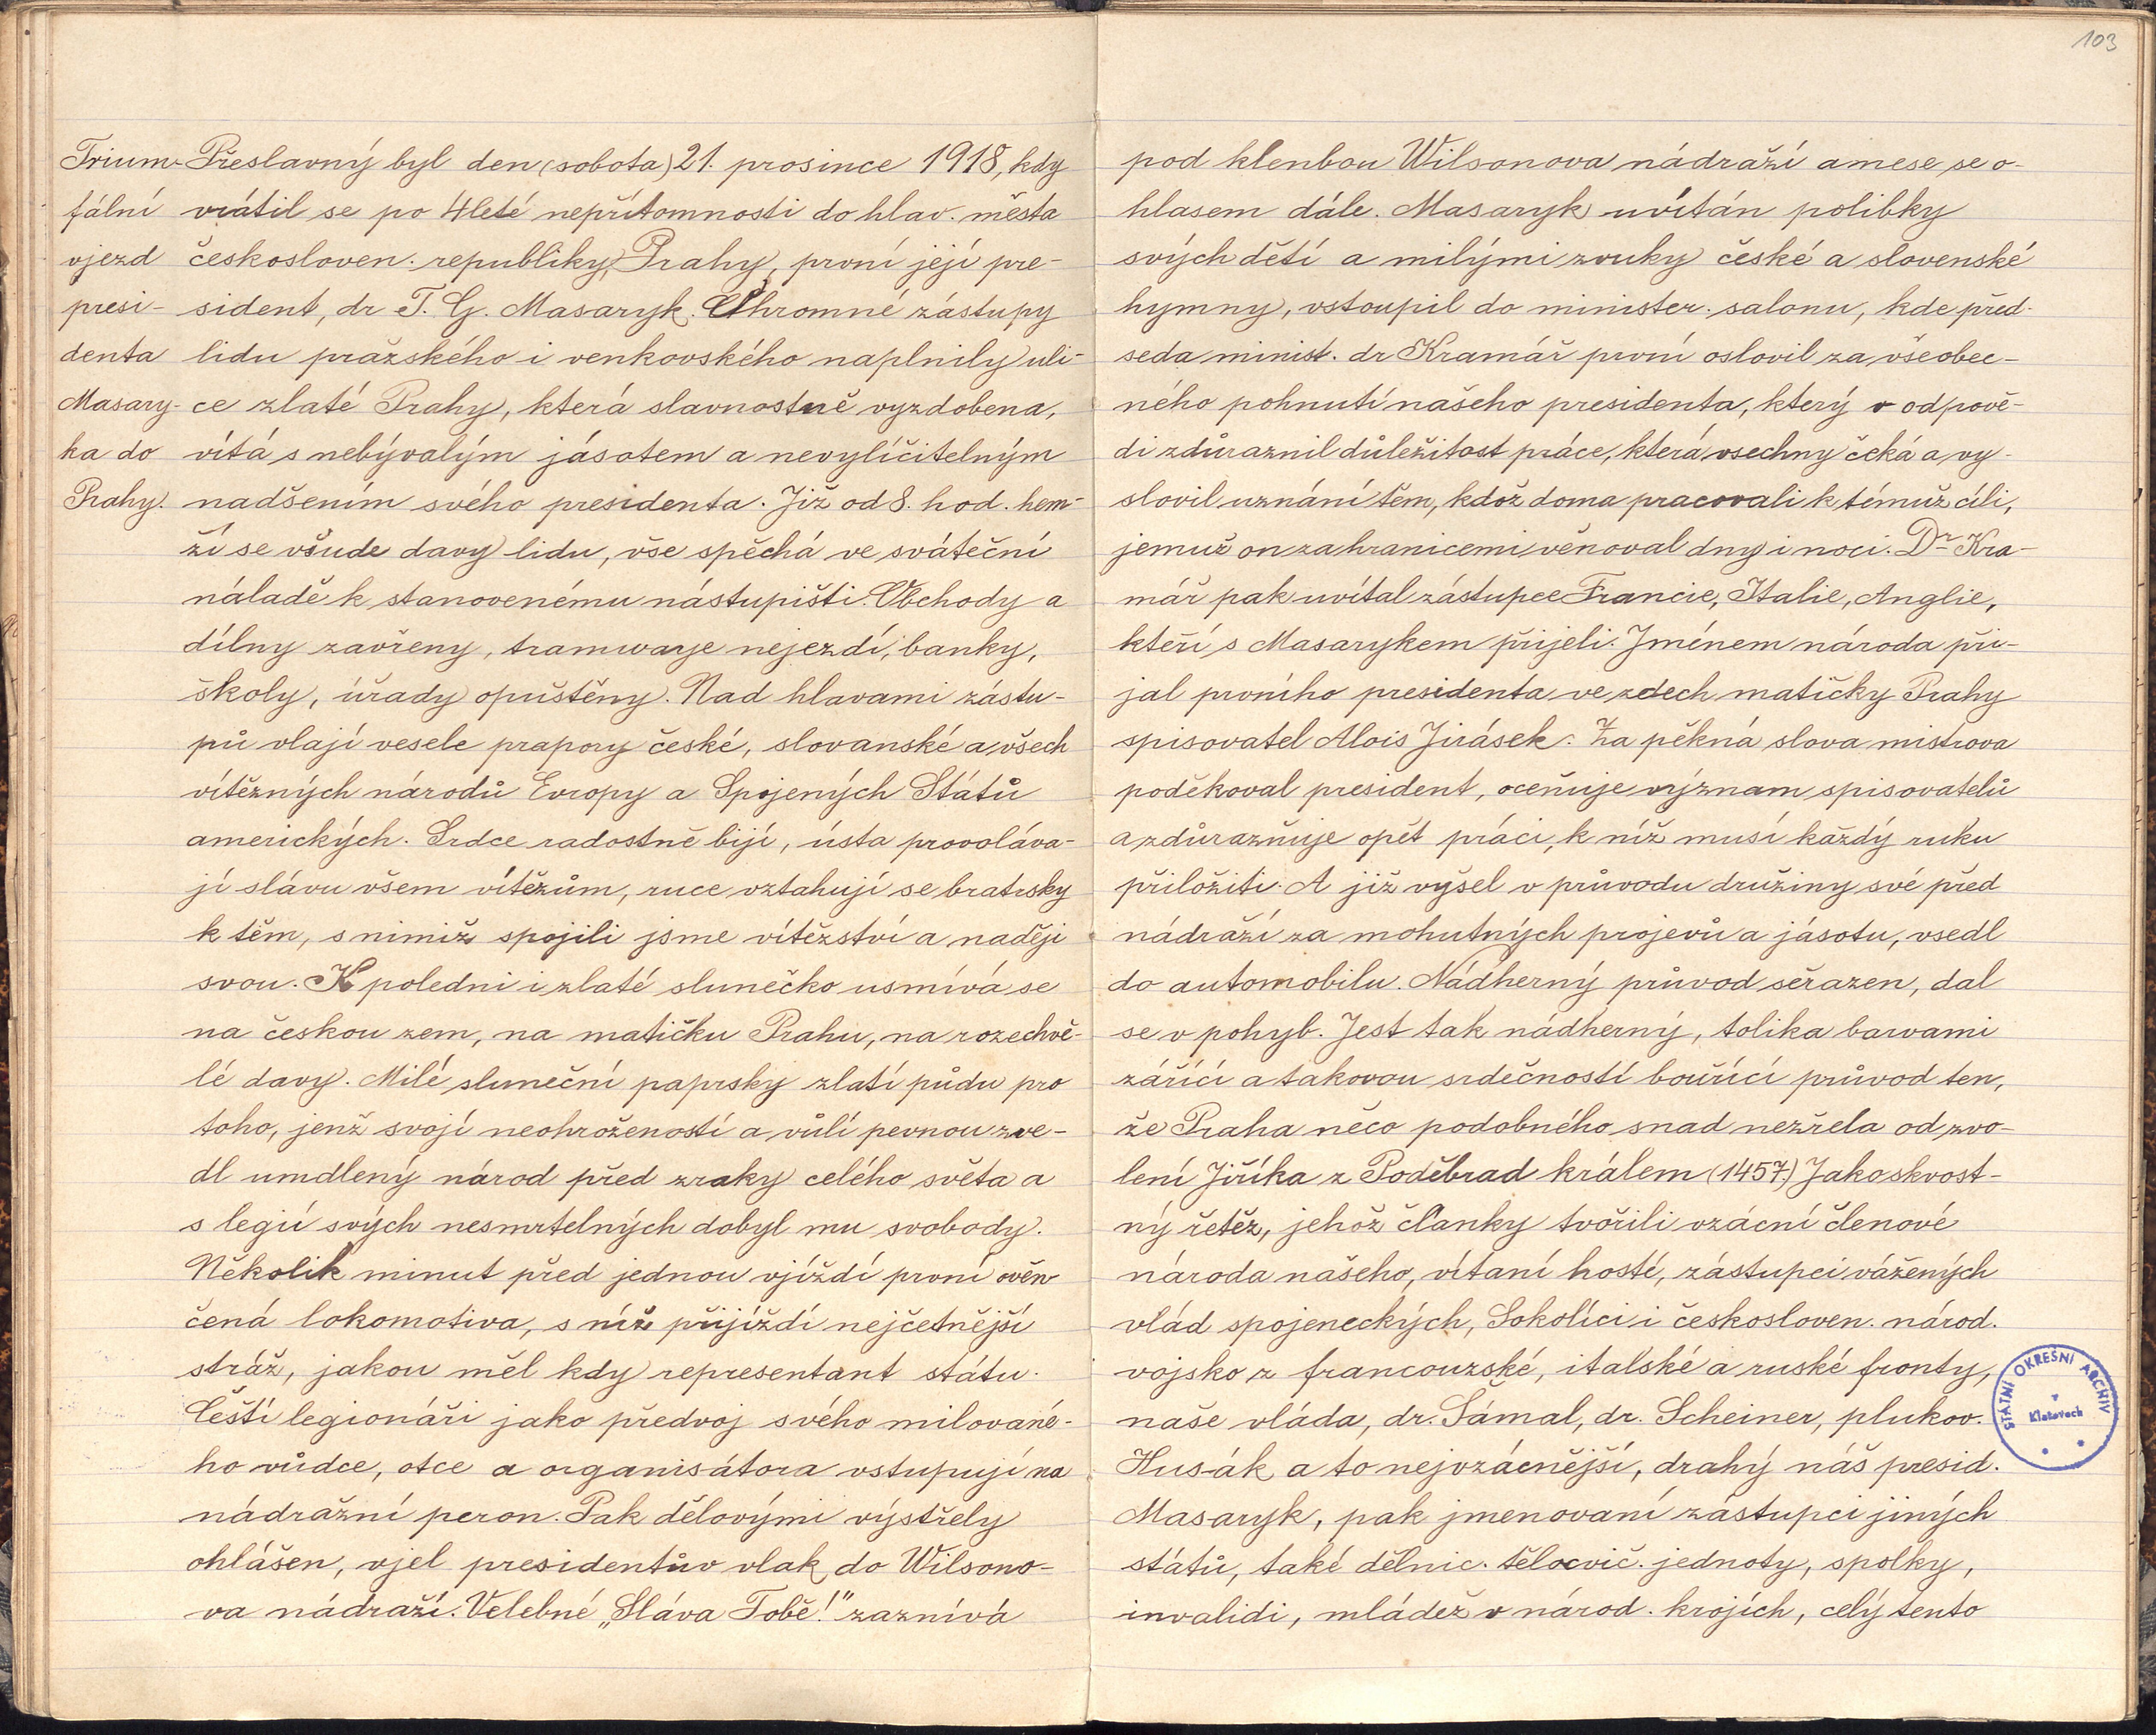 103
Trium-
fální
vjezd
presi-
denta
Masary-
ka do
Prahy.
Přeslavný byl den (sobota) 21. prosince 1918, kdy
vrátil se po 4leté nepřítomnosti do hlav. města
českosloven. republiky, Prahy, první její pre-
sident, dr T. G. Masaryk. Ohromné zástupy
lidu pražského i venkovského naplnily uli-
ce zlaté Prahy, která slavnostně vyzdobena,
vítá s nebývalým jásotem a nevylíčitelným
nadšením svého presidenta. Již od 8. hod. hem-
ží se všude davy lidu, vše spěchá ve sváteční
náladě k stanovenému nástupišti. Obchody a
dílny zavřeny, tramwaye nejezdí, banky,
školy, úřady opuštěny. Nad hlavami zástu-
pů vlají vesele prapory české, slovanské a všech
vítězných národů Evropy a Spojených Států
amerických. Srdce radostně bijí, ústa provoláva-
jí slávu všem vítězům, ruce vztahují se bratrsky
k těm, s nimiž spojili jsme vítězství a naději
svou. K poledni i zlaté slunečko usmívá se
na českou zem, na matičku Prahu, na rozechvě-
lé davy. Milé sluneční paprsky zlatí půdu pro
toho, jenž svojí neohrožeností a vůlí pevnou zve-
dl umdlený národ před zraky celého světa a
s legií svých nesmrtelných dobyl mu svobody.
Několik minut před jednou vjíždí první ověn-
čená lokomotiva, s níž přijíždí nejčetnější
stráž, jakou měl kdy representant státu.
Čeští legionáři jako předvoj svého milované-
ho vůdce, otce a organisátora vstupují na
nádražní peron. Pak dělovými výstřely
ohlášen, vjel presidentův vlak do Wilsono-
va nádraží. Velebné „Sláva Tobě!" zaznívá
pod klenbou Wilsonova nádraží a nese se o-
hlasem dále. Masaryk uvítán polibky
svých dětí a milými zvuky české a slovenské
hymny, vstoupil do minister. salonu, kde před-
seda minist. dr Kramář první oslovil za všeobec-
ného pohnutí našeho presidenta, který v odpově-
di zdůraznil důležitost práce, která všechny čeká a vy-
slovil uznání těm, kdož doma pracovali k témuž cíli,
jemuž on za hranicemi věnoval dny i noci. Dr Kra-
mář pak uvítal zástupce Francie, Italie, Anglie,
kteří s Masarykem přijeli. Jménem národa při-
jal prvního presidenta ve zdech matičky Prahy
spisovatel Alois Jirásek. Za pěkná slova mistrova
poděkoval president, oceňuje význam spisovatelů
a zdůrazňuje opět práci, k níž musí každý ruku
přiložiti. A již vyšel v průvodu družiny své před
nádraží za mohutných projevů a jásotu, vsedl
do automobilu. Nádherný průvod seřazen, dal
se v pohyb. Jest tak nádherný, tolika barvami
zářící a takovou srdečností bouřící průvod ten,
že Praha něco podobného snad nezřela od zvo-
lení Jiříka z Poděbrad králem (1457). Jako skvost-
ný řetěz, jehož články tvořili vzácní členové
národa našeho, vítaní hosté, zástupci vážených
vlád spojeneckých, Sokolíci i českosloven. národ.
vojsko z francouzské, italské a ruské fronty,
naše vláda, dr. Šámal, dr. Scheiner, plukov.
Husák a to nejvzácnější, drahý náš presid.
Masaryk, pak jmenovaní zástupci jiných
států, také dělnic. tělocvič. jednoty, spolky,
invalidi, mládež v národ. krojích, celý tento
STÁTNÍ OKRESNÍ ARCHIV
v
Klatovech